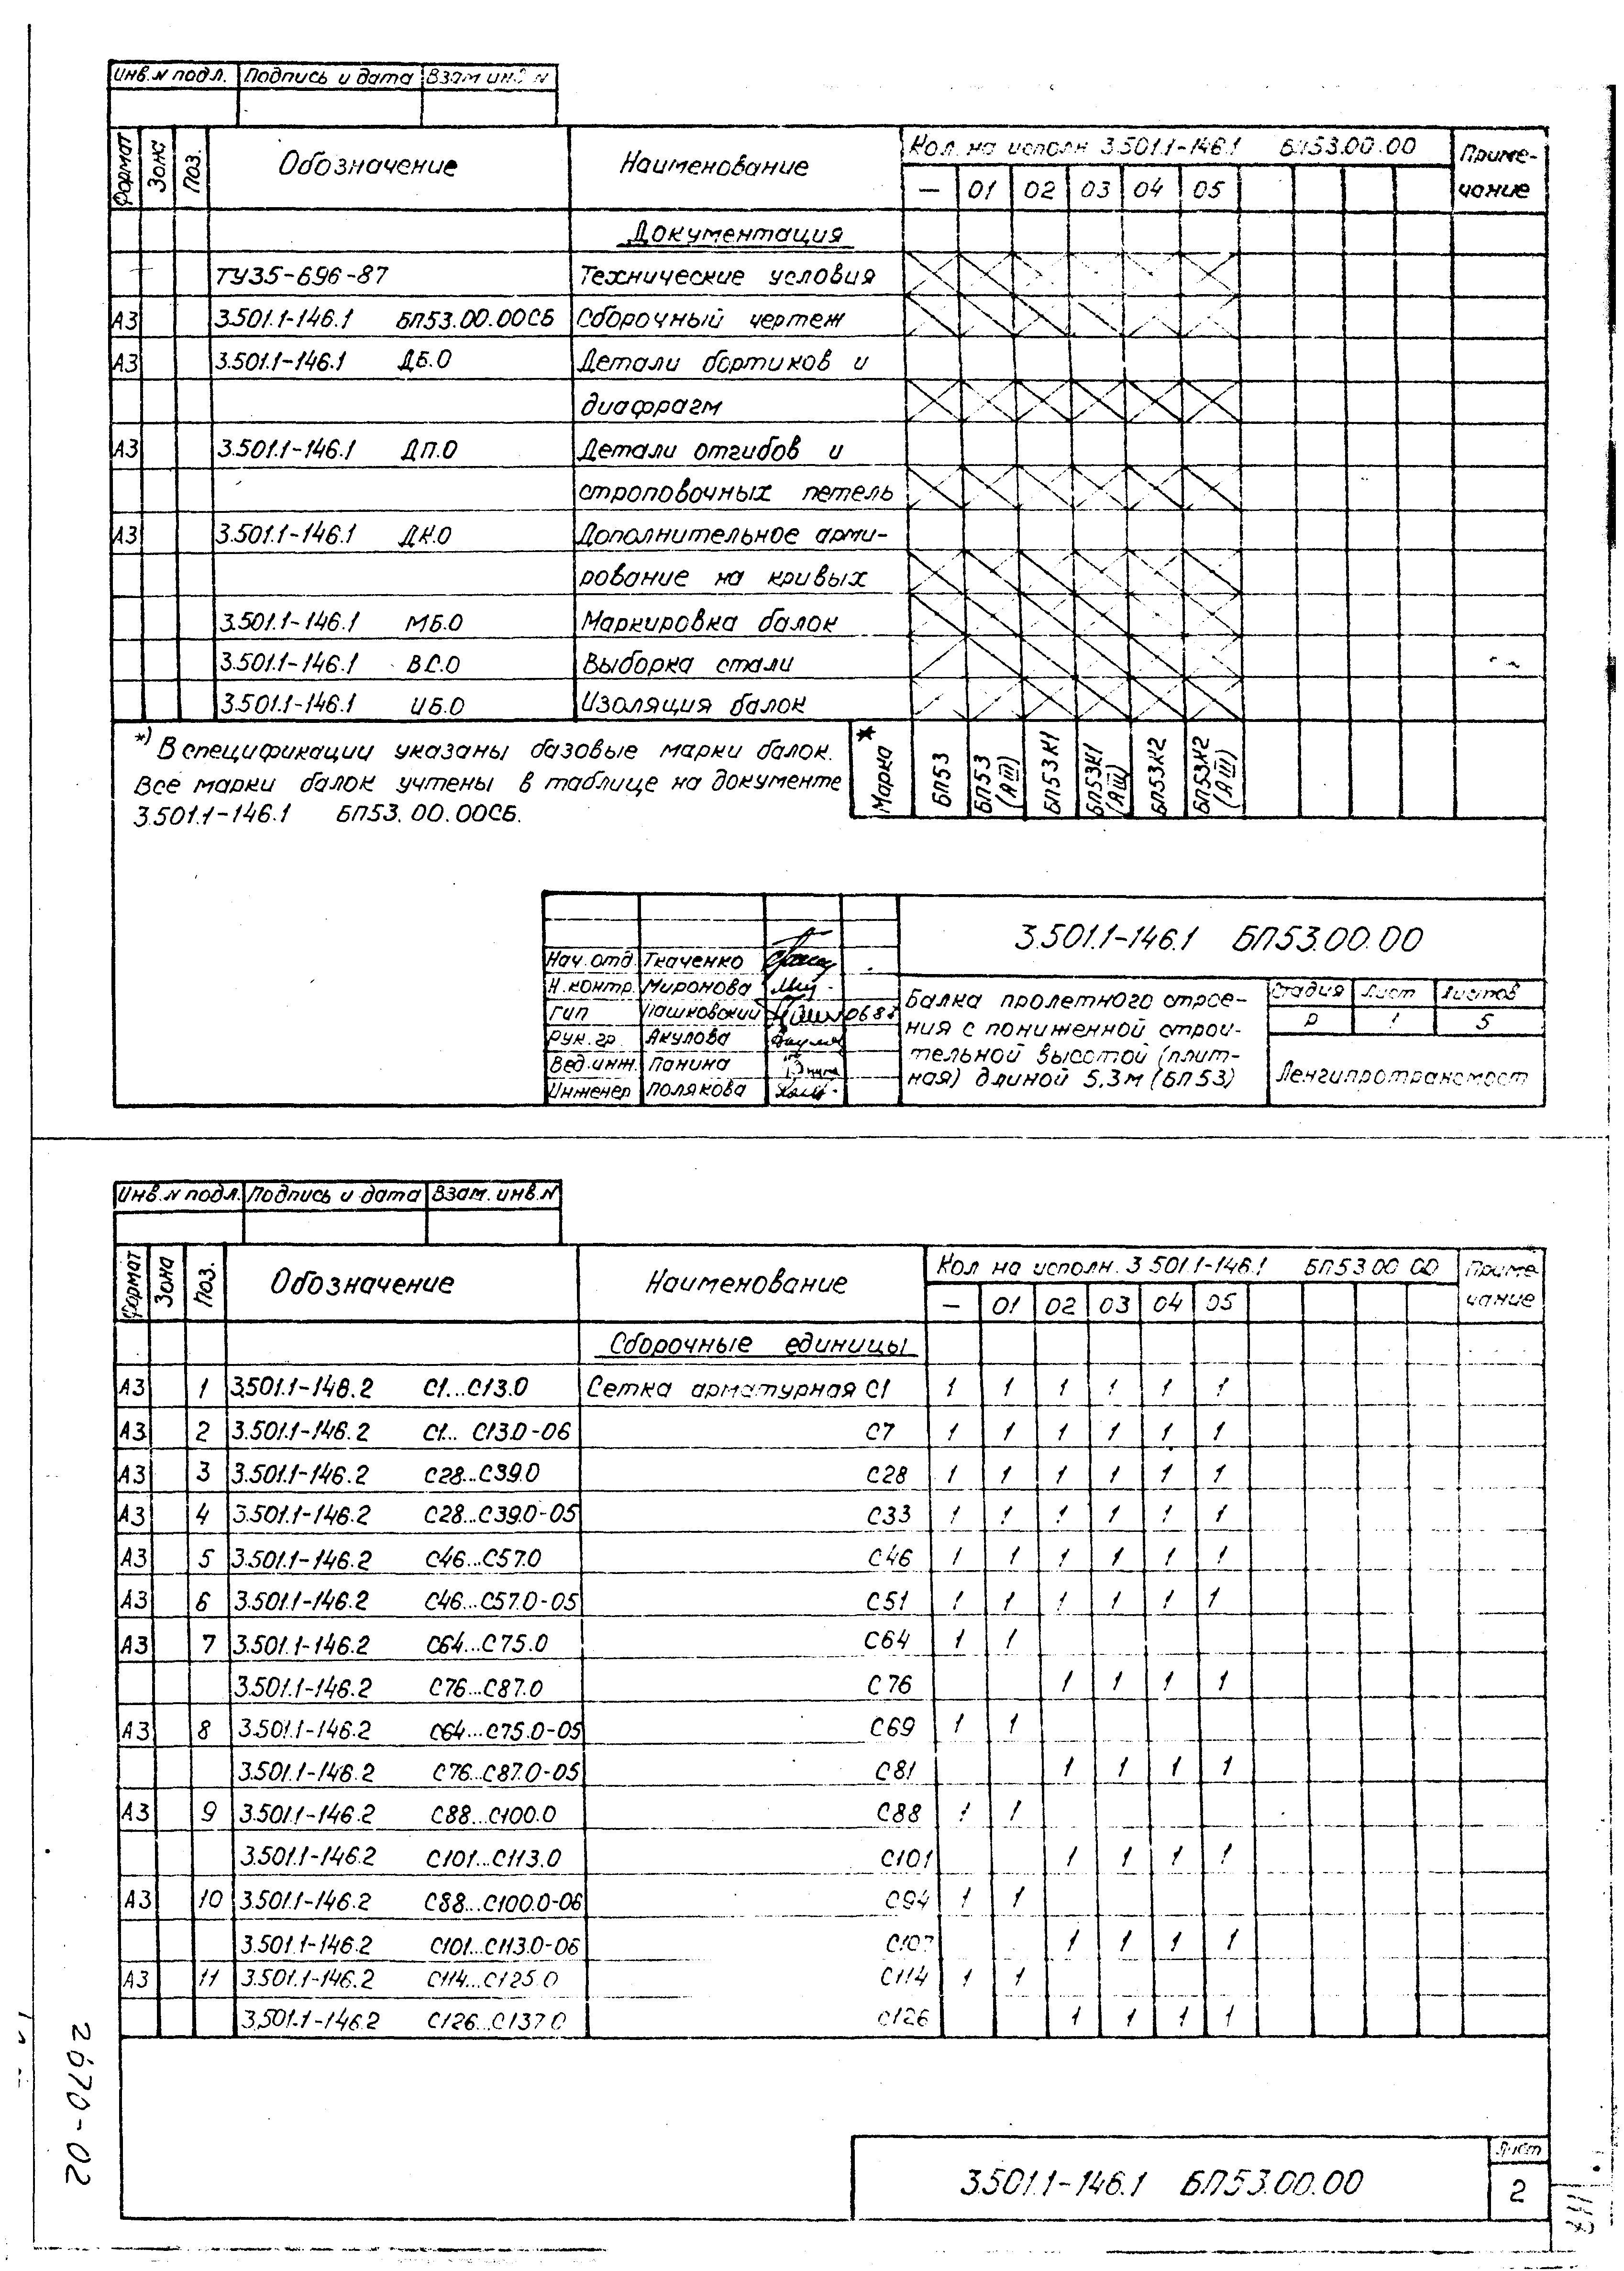 Инв.N подл. Подпись и дата Взам инв N
Формат Зона Поз. Обозначение Наименование Кол. на исполн 3.501.1-146.1 БП53.00.00 Приме-
чание
— 01 02 03 04 05
Документация
ТУ35-696-87 Технические условия
А3 3.501.1-146.1 БП53.00.00СБ Сборочный чертеж
А3 3.501.1-146.1 ДБ.0 Детали бортиков и
диафрагм
А3 3.501.1-146.1 ДП.0 Детали отгибов и
строповочных петель
А3 3.501.1-146.1 ДК.0 Дополнительное арми-
рование на кривых
3.501.1-146.1 МБ.0 Маркировка балок
3.501.1-146.1 ВС.0 Выборка стали
3.501.1-146.1 ИБ.0 Изоляция балок
*) В спецификации указаны базовые марки балок.
Все марки балок учтены в таблице на документе
3.501.1-146.1 БП53.00.00СБ.
* Марка БП53 БП53 (АIII) БП53К1 БП53К1 (АIII) БП53К2 БП53К2 (АIII)
3.501.1-146.1 БП53.00.00
Нач. отд. Ткаченко
Н.контр. Миронова
ГИП Пашковский 06.87
Рук. гр. Акулова
Вед.инж. Панина
Инженер Полякова
Балка пролетного строе-
ния с пониженной строи-
тельной высотой (плит-
ная) длиной 5,3м (БП53)
Стадия Лист Листов
Р 1 5
Ленгипротрансмост
Инв.N подл. Подпись и дата Взам. инв.N
Формат Зона Поз. Обозначение Наименование Кол на исполн. 3 501.1-146.1 БП53 00 00 Приме-
чание
— 01 02 03 04 05
Сборочные единицы
А3 1 3.501.1-148.2 С1...С13.0 Сетка арматурная С1 1 1 1 1 1 1
А3 2 3.501.1-146.2 С1... С13.0-06 С7 1 1 1 1 1 1
А3 3 3.501.1-146.2 С28...С39.0 С28 1 1 1 1 1 1
А3 4 3.501.1-146.2 С28...С39.0-05 С33 1 1 1 1 1 1
А3 5 3.501.1-146.2 С46...С57.0 С46 1 1 1 1 1 1
А3 6 3.501.1-146.2 С46...С57.0-05 С51 1 1 1 1 1 1
А3 7 3.501.1-146.2 С64...С75.0 С64 1 1
3.501.1-146.2 С76...С87.0 С76 1 1 1 1
А3 8 3.501.1-146.2 С64...С75.0-05 С69 1 1
3.501.1-146.2 С76...С87.0-05 С81 1 1 1 1
А3 9 3.501.1-146.2 С88...С100.0 С88 1 1
3.501.1-146.2 С101...С113.0 С101 1 1 1 1
А3 10 3.501.1-146.2 С88...С100.0-06 С94 1 1
3.501.1-146.2 С101...С113.0-06 С107 1 1 1 1
А3 11 3.501.1-146.2 С114...С125.0 С114 1 1
3.501.1-146.2 С126...С137.0 С126 1 1 1 1
3.501.1-146.1 БП53.00.00
Лист
2
2670-02